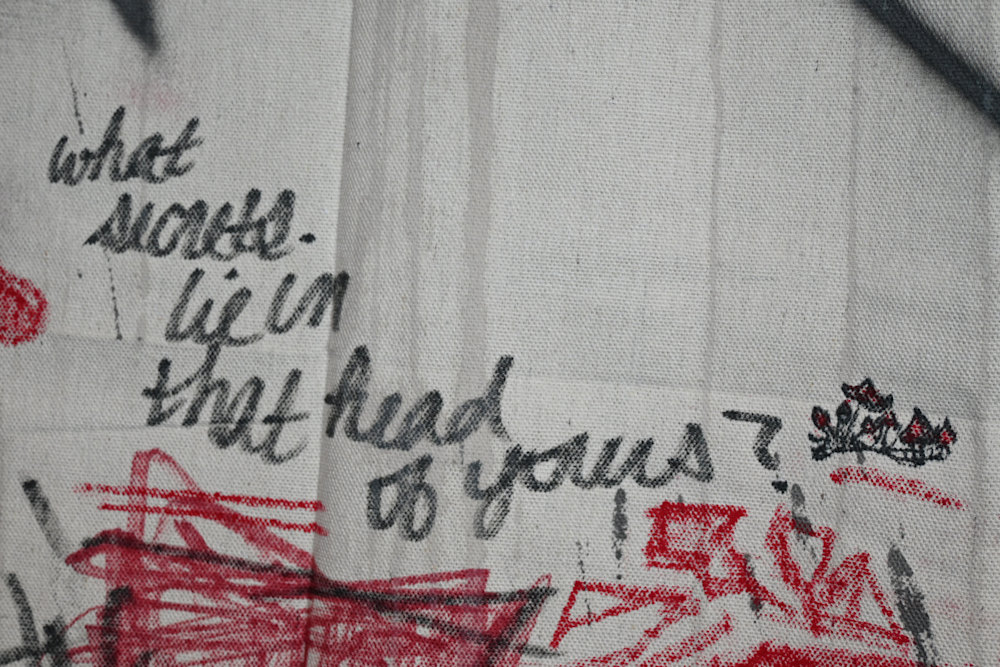 what
secrets.
lie in
that head
of yours?